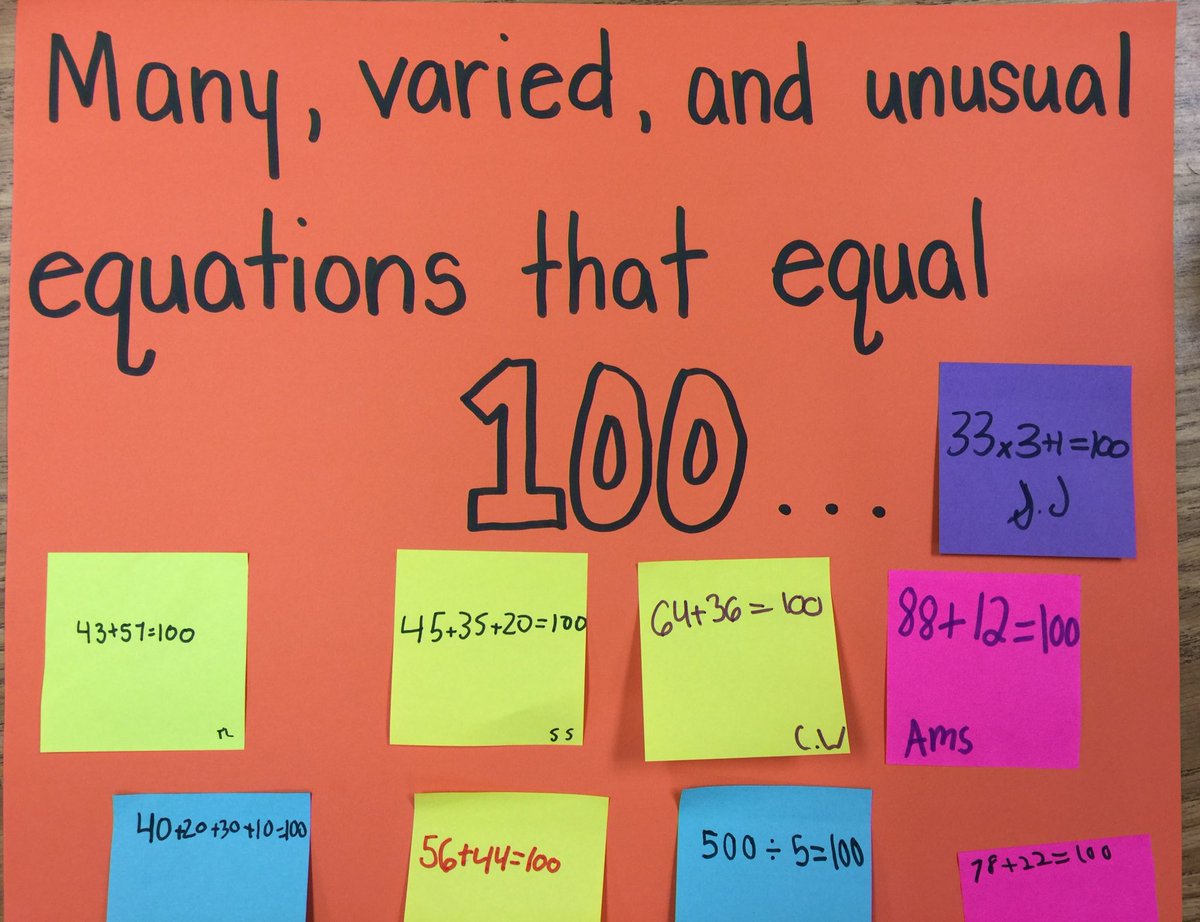 Many, varied, and unusual
equations that equal
100...
33x3+1=100
J.J
43+57=100
45+35+20=100
SS
64+36=100
C.W
88+12=100
Ams
40+20+30+10=100
56+44=100
500÷5=100
78+22=100